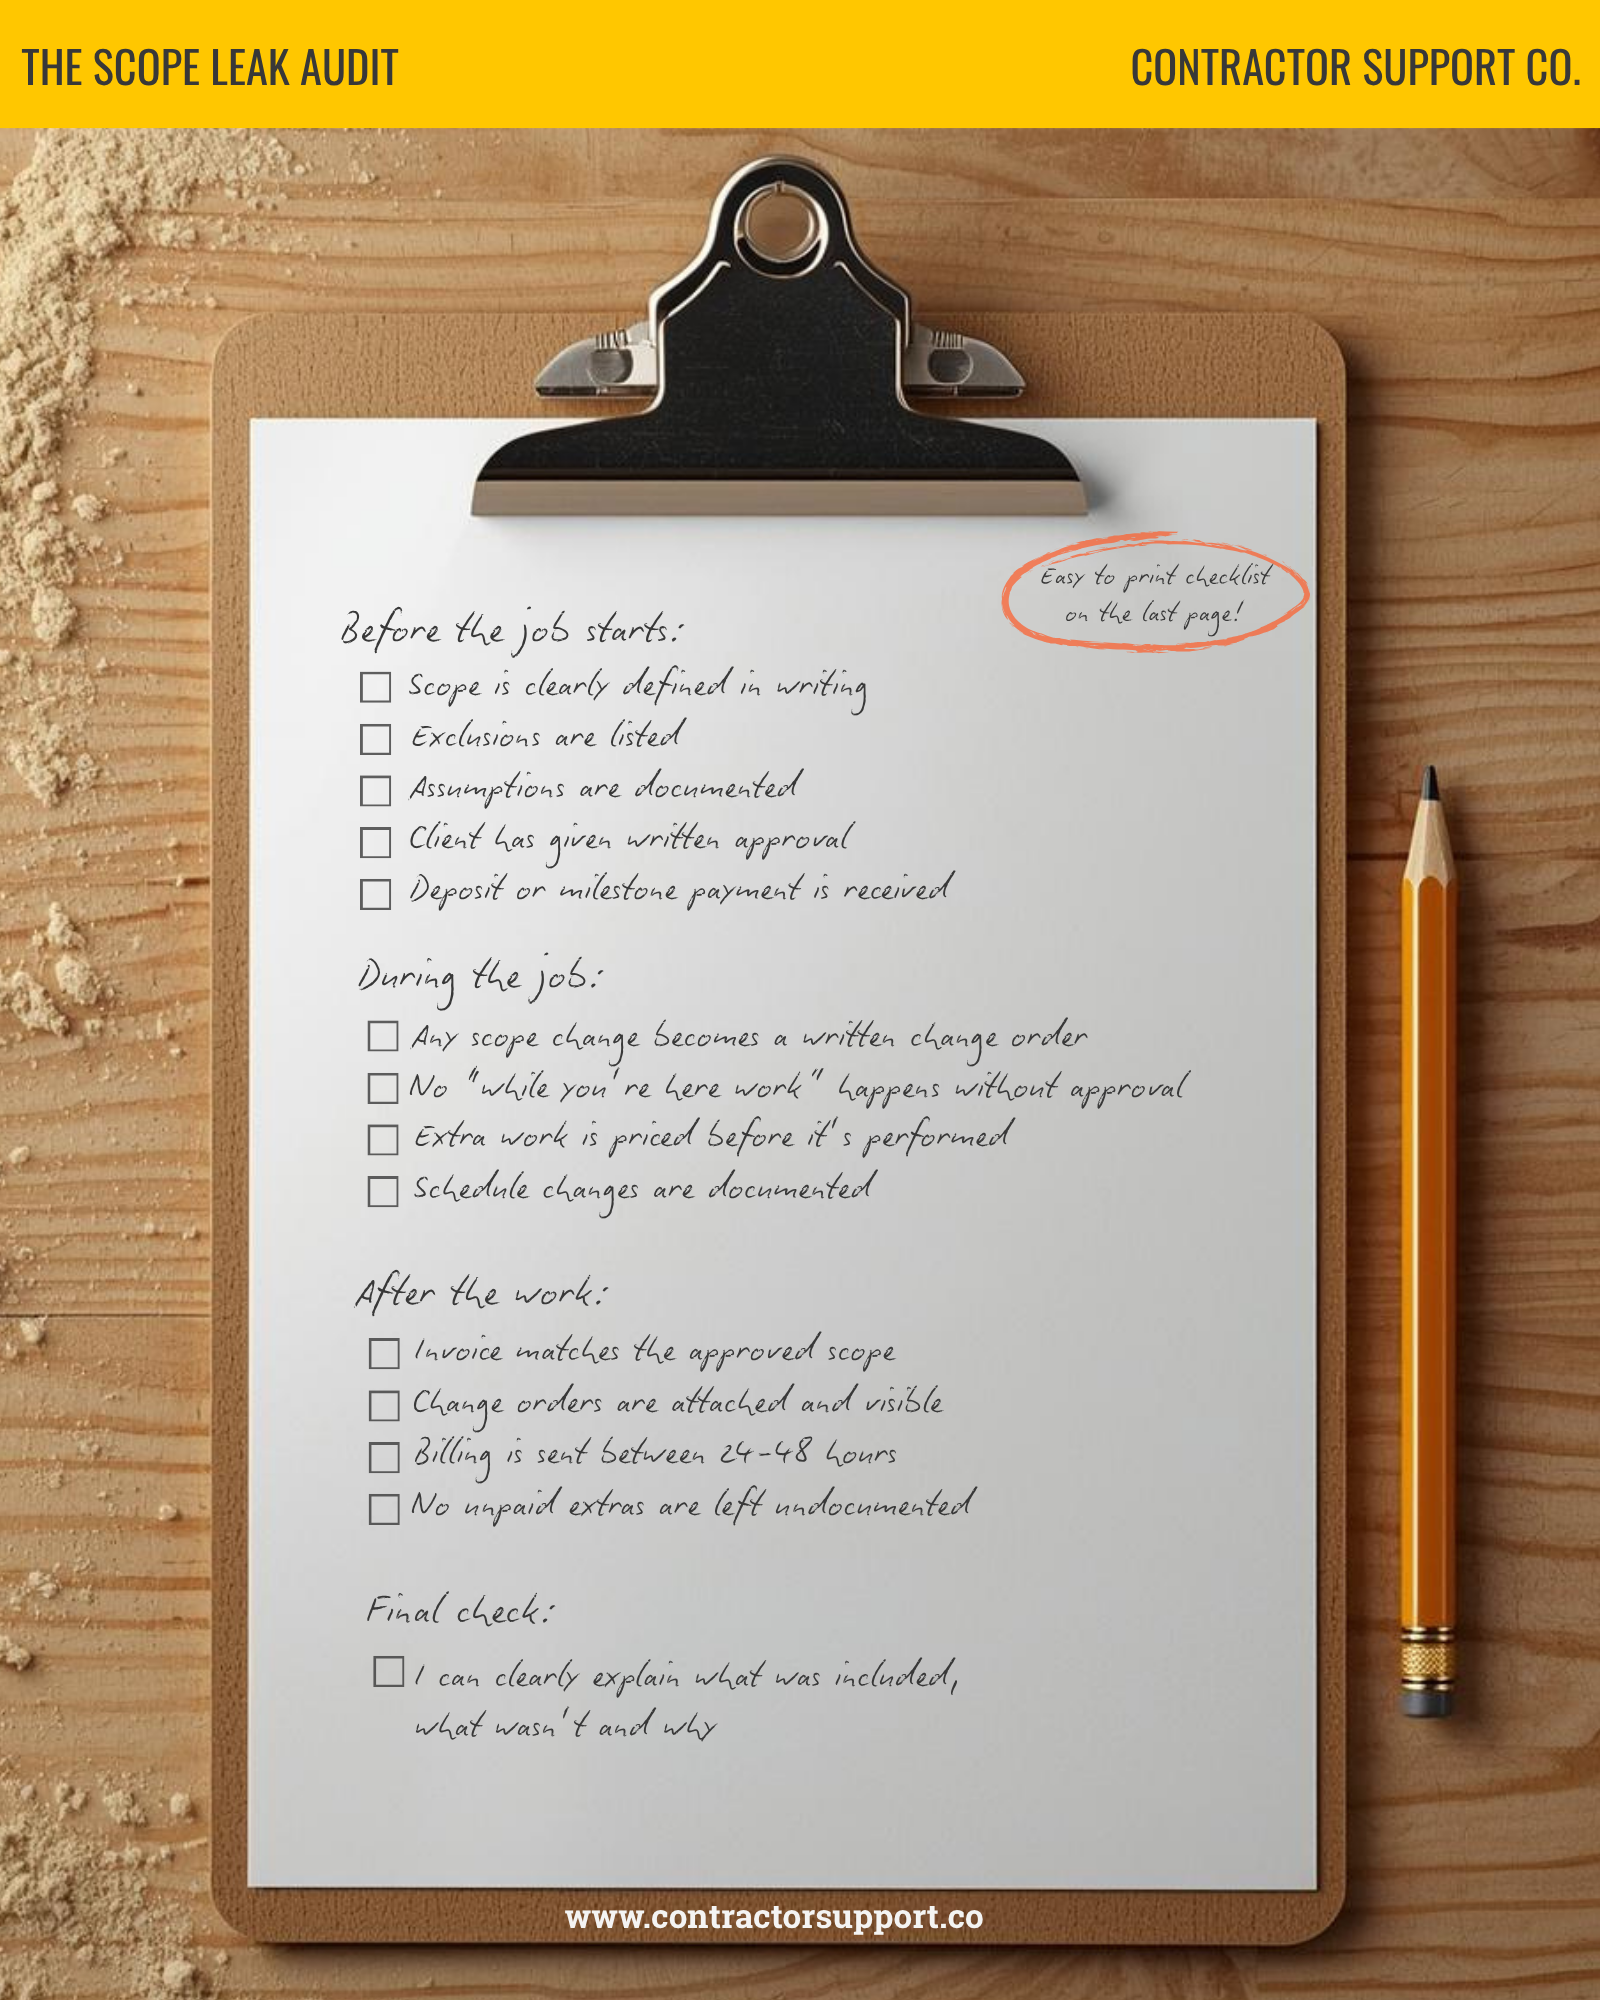 THE SCOPE LEAK AUDIT
CONTRACTOR SUPPORT CO.
Easy to print checklist
on the last page!
Before the job starts:
Scope is clearly defined in writing
Exclusions are listed
Assumptions are documented
Client has given written approval
Deposit or milestone payment is received
During the job:
Any scope change becomes a written change order
No "while you're here work" happens without approval
Extra work is priced before it's performed
Schedule changes are documented
After the work:
Invoice matches the approved scope
Change orders are attached and visible
Billing is sent between 24-48 hours
No unpaid extras are left undocumented
Final check:
I can clearly explain what was included,
what wasn't and why
www.contractorsupport.co